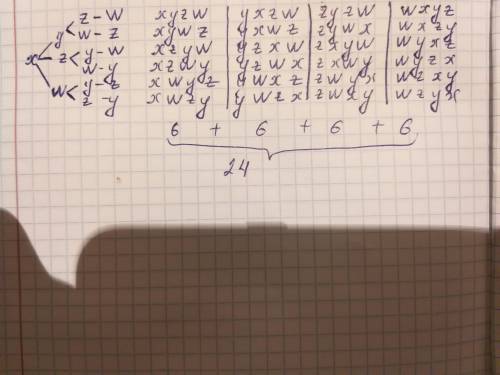 z - w xyzw yxzw zyzw wxyz
y < w - z xywz yxwz zywx wxzy
x z < y - w xzyw yzxw zxyw wyxz
w - y xzwy yzwx zxwy wyzx
w < y - z xwyz ywxz zwyx wzxy
z - y xwzy ywzx zwxy wzyx
6 + 6 + 6 + 6
24